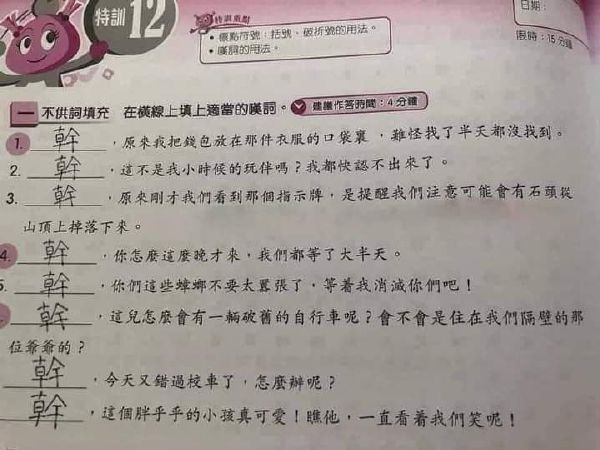 特訓 12
特訓重點
• 標點符號：括號、破折號的用法。
• 嘆詞的用法。
日期：
限時：15分鐘
一 不供詞填充 在橫線上填上適當的嘆詞。 建議作答時間：4分鐘
1. 幹，原來我把錢包放在那件衣服的口袋裏，難怪找了半天都沒找到。
2. 幹，這不是我小時候的玩伴嗎？我都快認不出來了。
3. 幹，原來剛才我們看到那個指示牌，是提醒我們注意可能會有石頭從
山頂上掉落下來。
4. 幹，你怎麼這麼晚才來，我們都等了大半天。
幹，你們這些蟑螂不要太囂張了，等着我消滅你們吧！
幹，這兒怎麼會有一輛破舊的自行車呢？會不會是住在我們隔壁的那
位爺爺的？
幹，今天又錯過校車了，怎麼辦呢？
幹，這個胖乎乎的小孩真可愛！瞧他，一直看着我們笑呢！